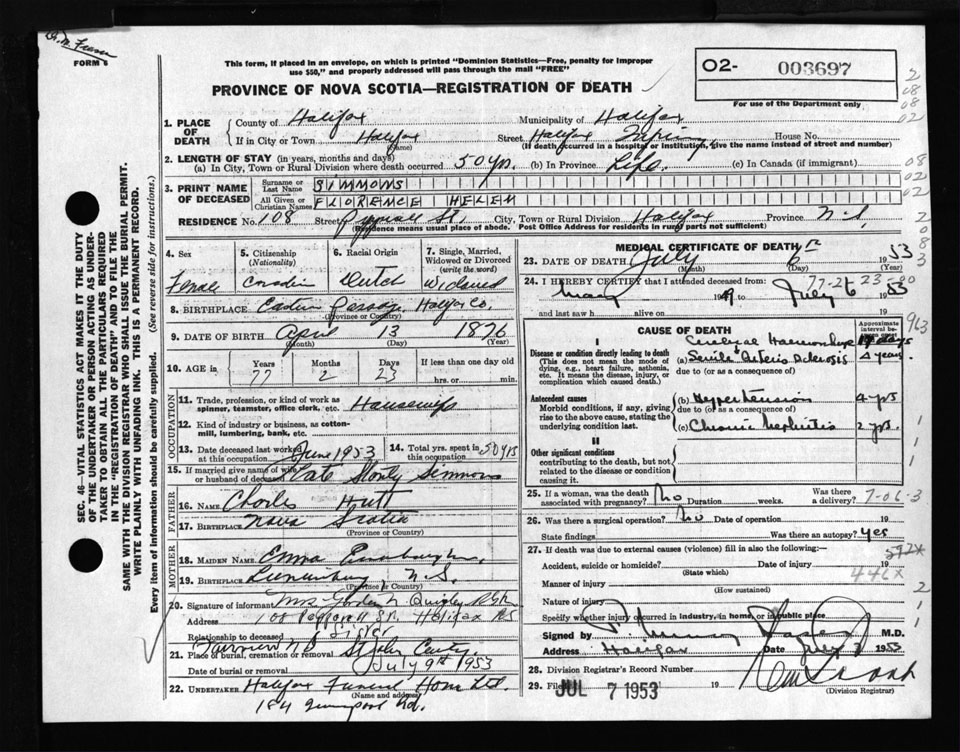 Dr. M. Fraser
FORM 6
This form, if placed in an envelope, on which is printed "Dominion Statistics—Free, penalty for improper
use $50," and properly addressed will pass through the mail "FREE"
PROVINCE OF NOVA SCOTIA—REGISTRATION OF DEATH
O2- 003697
For use of the Department only
1. PLACE OF DEATH County of Halifax Municipality of Halifax
If in City or Town Halifax (Name) Street Halifax Infirmary House No.
(If death occurred in a hospital or institution, give the name instead of street and number)
2. LENGTH OF STAY (in years, months and days)
(a) In City, Town or Rural Division where death occurred 50 yrs. (b) In Province Life. (c) In Canada (if immigrant)
3. PRINT NAME OF DECEASED Surname or Last Name SIMMONS
All Given or Christian Names FLORENCE HELEN
RESIDENCE No. 108 Street Pepperell St. City, Town or Rural Division Halifax Province N.S.
(Residence means usual place of abode. Post Office Address for residents in rural parts not sufficient)
4. Sex Female
5. Citizenship (Nationality) Canadian
6. Racial Origin Dutch
7. Single, Married, Widowed or Divorced (write the word) Widowed
8. BIRTHPLACE Eastern Passage, Halifax Co. (Province or Country)
9. DATE OF BIRTH April (Month) 13 (Day) 1876 (Year)
10. AGE in Years 77 Months 2 Days 23 If less than one day old hrs. or min.
OCCUPATION
11. Trade, profession, or kind of work as spinner, teamster, office clerk, etc. Housewife
12. Kind of industry or business, as cotton-mill, lumbering, bank, etc.
13. Date deceased last worked at this occupation June 1953
14. Total yrs. spent in this occupation 50 yrs
15. If married give name of wife or husband of deceased Late Simmons
FATHER
16. NAME Charles Hutt
17. BIRTHPLACE Nova Scotia (Province or Country)
MOTHER
18. MAIDEN NAME Emma
19. BIRTHPLACE Lunenburg, N.S. (Province or Country)
20. Signature of informant Mrs. Quigley
Address 108 Pepperell St. Halifax N.S.
Relationship to deceased Sister
21. Place of burial, cremation or removal Fairview N.S St John Cemty.
Date of burial or removal July 9th 1953
22. UNDERTAKER Halifax Funeral Home Ltd.
(Name and address)
184 Quinpool Rd.
MEDICAL CERTIFICATE OF DEATH
23. DATE OF DEATH July (Month) 6th (Day) 1953 (Year)
24. I HEREBY CERTIFY that I attended deceased from: 77-2-23
May 1949 to July 6 1953
and last saw h alive on 19
CAUSE OF DEATH
Approximate interval be-
I
Disease or condition directly leading to death
(This does not mean the mode of dying, e.g., heart failure, asthenia, etc. It means the disease, injury, or complication which caused death.)
Cerebral Haemorrhage days
(a) Senile Arterio Sclerosis 4 years.
due to (or as a consequence of)
Antecedent causes
Morbid conditions, if any, giving rise to the above cause, stating the underlying condition last.
(b) Hypertension 4 yrs
due to (or as a consequence of)
(c) Chronic Nephritis 2 yrs.
II
Other significant conditions
contributing to the death, but not related to the disease or condition causing it.
25. If a woman, was the death associated with pregnancy? No Duration weeks. Was there a delivery?
7-06-3
26. Was there a surgical operation? No Date of operation 19
State findings Was there an autopsy? Yes
27. If death was due to external causes (violence) fill in also the following:—
Accident, suicide or homicide? (State which) Date of injury 19
592x
446x
Manner of injury (How sustained)
Nature of injury
Specify whether injury occurred in industry, in home, or in public place
Signed by M.D.
Address Halifax Date July 7 1953
28. Division Registrar's Record Number
29. Filed JUL 7 1953 19
(Division Registrar)
SEC. 46—VITAL STATISTICS ACT MAKES IT THE DUTY
OF THE UNDERTAKER OR PERSON ACTING AS UNDER-
TAKER TO OBTAIN ALL THE PARTICULARS REQUIRED
IN THE "REGISTRATION OF DEATH" AND TO FILE THE
SAME WITH THE DIVISION REGISTRAR WHO SHALL ISSUE THE BURIAL PERMIT.
WRITE PLAINLY WITH UNFADING INK. THIS IS A PERMANENT RECORD.
Every item of information should be carefully supplied. (See reverse side for instructions.)